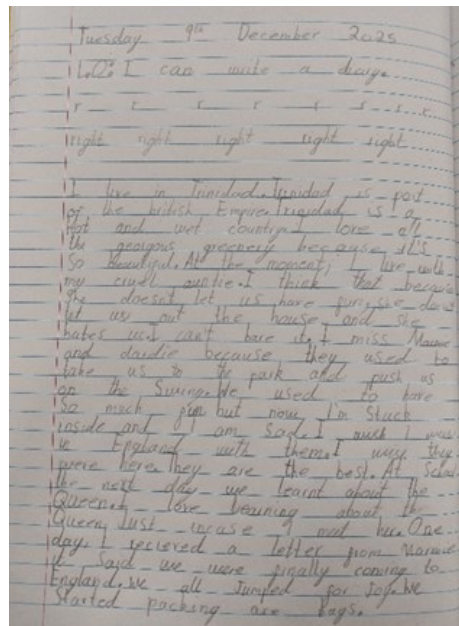 Tuesday 9th December 2025
L.O: I can write a diary.
r r r r r r r r
right right right right right
I live in Trinidad. Trinidad is part
of the british Empire. Trinidad is a
Hot and wet country. I love all
the geougous greenery because it's
So beautiful. At the moment, I live with
my cruel auntie. I think that because
She doesn't let us have fun, she dosn't
let us out the house and she
hates us. I can't bare it. I miss Mamie
and dardie because they used to
take us to the park and push us
on the Swing. We used to have
So much fun but now I'm Stuck
inside and I am Sad. I wish I was
in England with them. I wish they
were here. They are the best. At School
the next day we learnt about the
Queen. I love learning about the
Queen Just incase I met her. One
day I recieved a letter from Mamie
it Said we were finally coming to
England. We all Jumped for Joy. We
Started packing are bags.